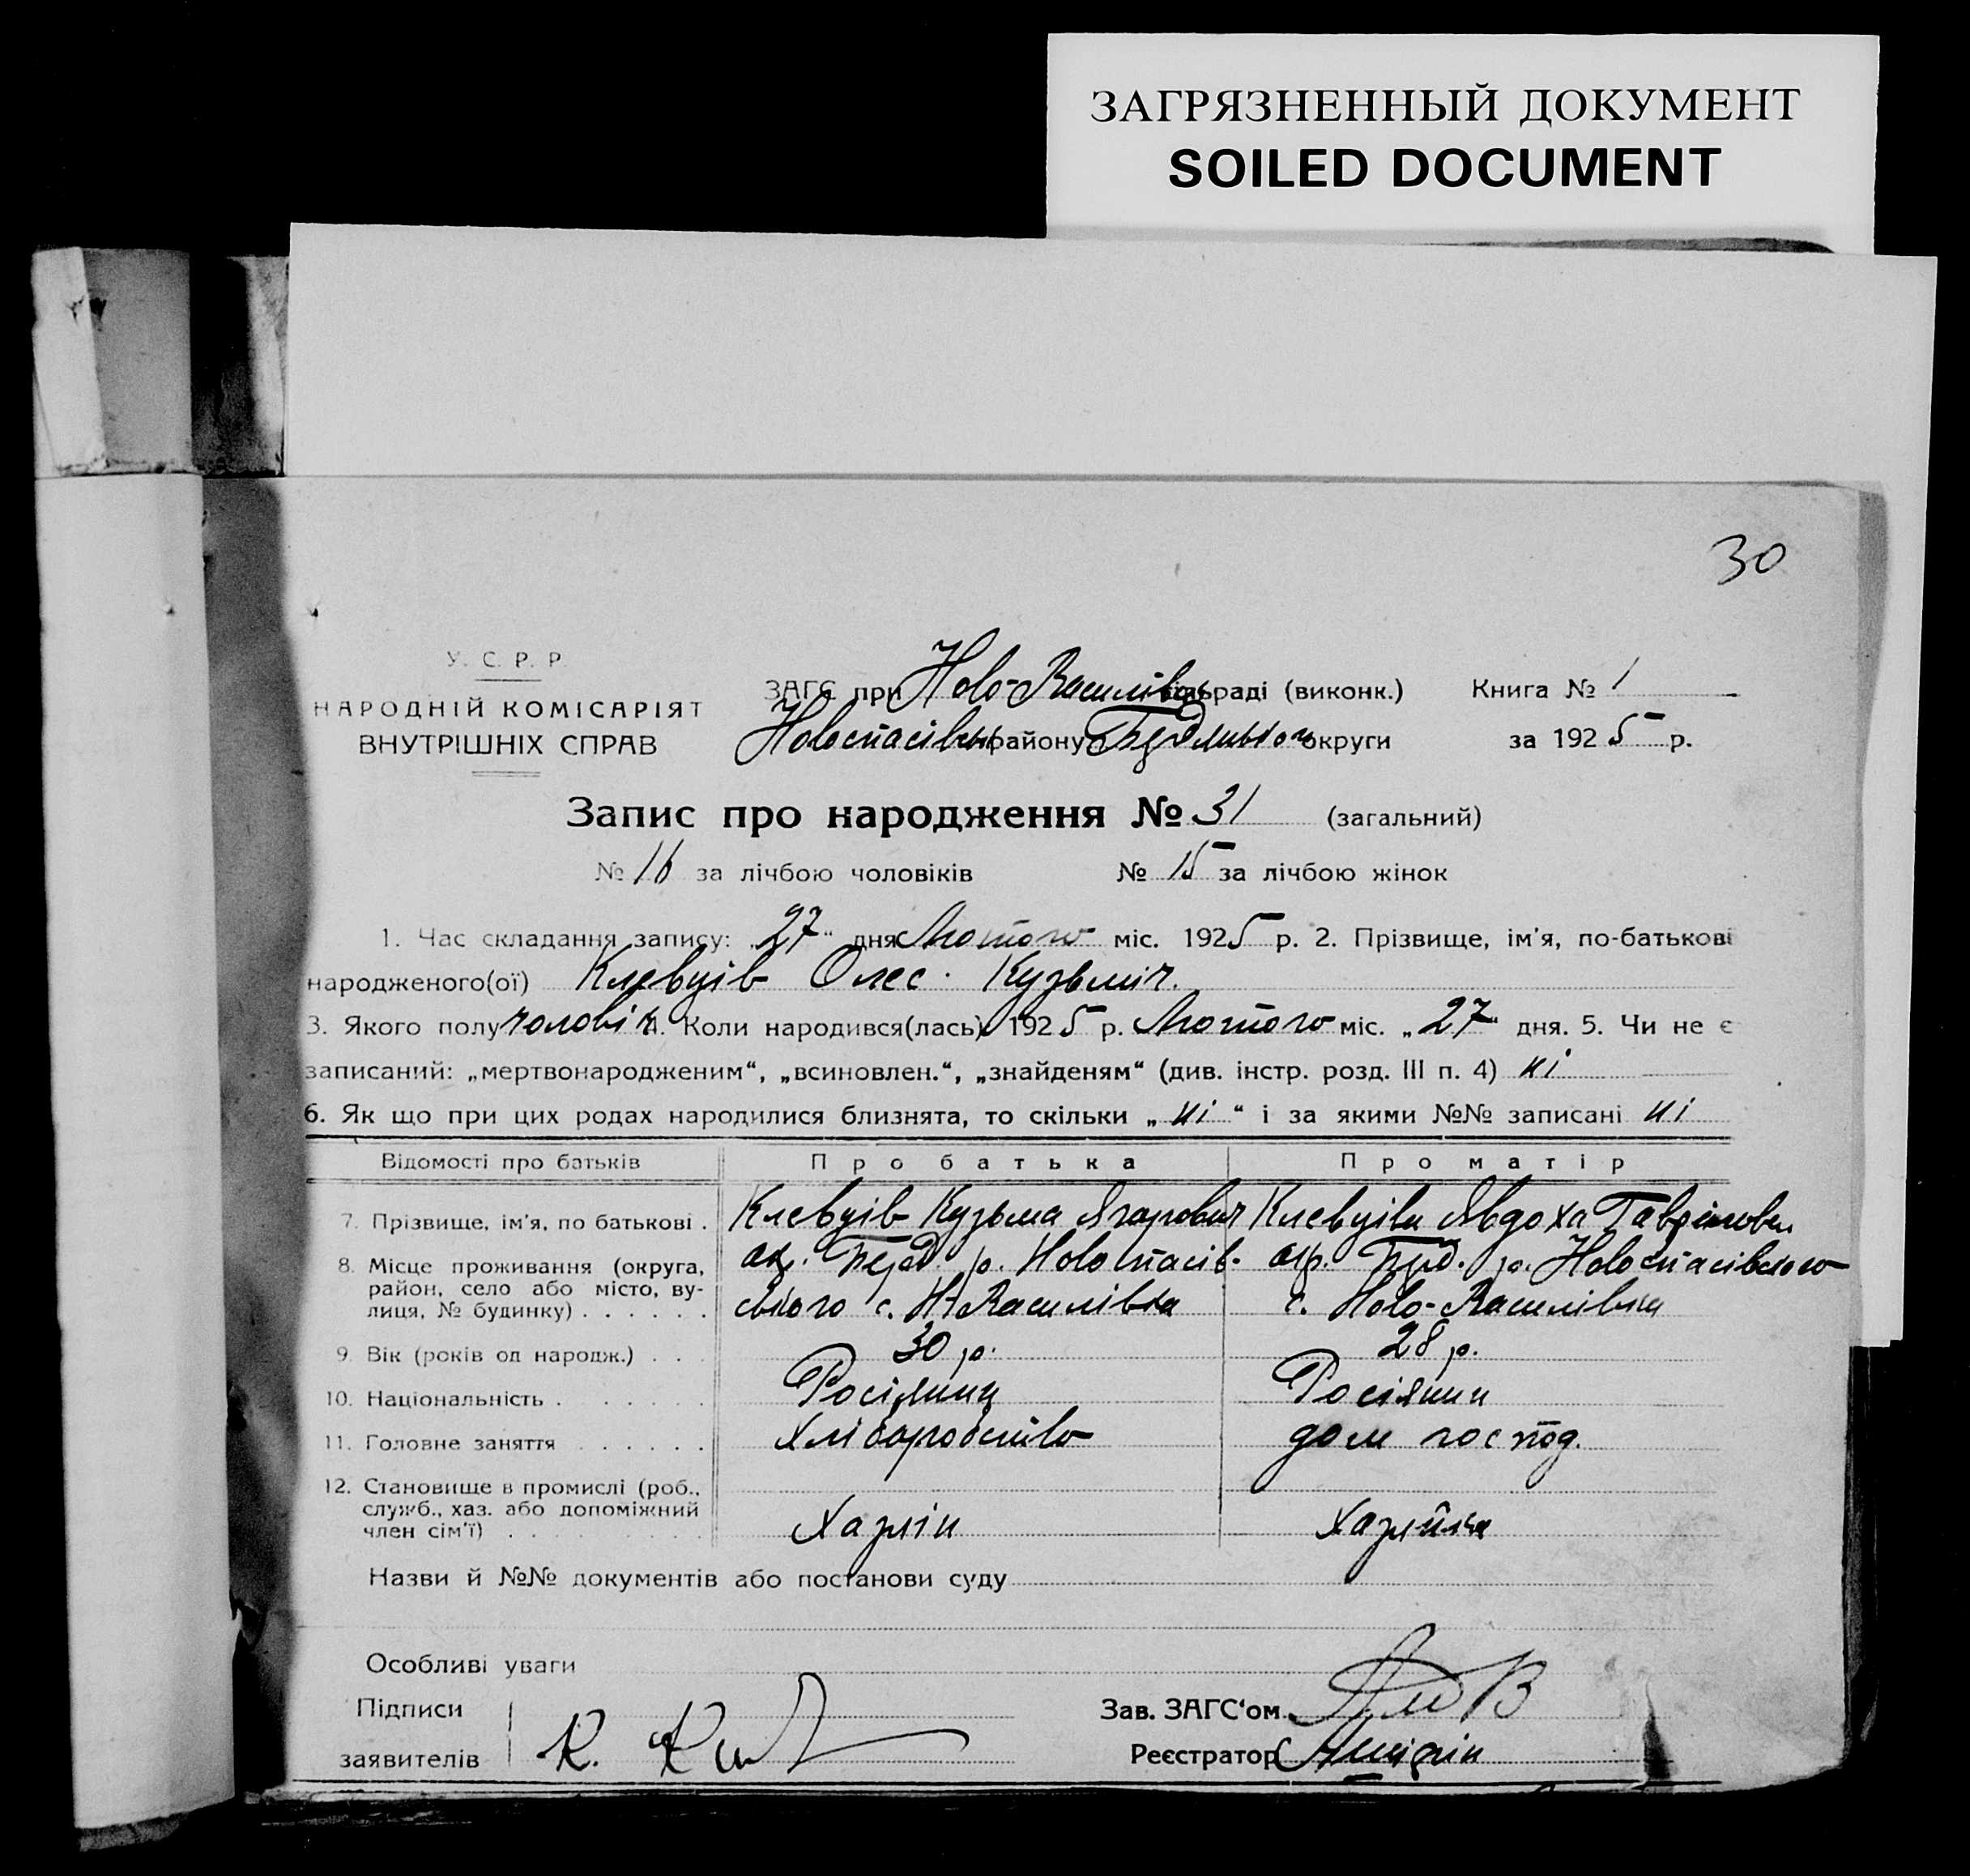 ЗАГРЯЗНЕННЫЙ ДОКУМЕНТ
SOILED DOCUMENT
30
У. С. Р. Р.
НАРОДНІЙ КОМІСАРІЯТ
ВНУТРІШНІХ СПРАВ
ЗАГС при Ново-Василівськ раді (виконк.) Книга № 1
Новоспасівськ району округи за 1925 р.
Запис про народження № 31 (загальний)
№ 16 за лічбою чоловіків № 15 за лічбою жінок
1. Час складання запису: „27“ дня Лютого міс. 1925 р. 2. Прізвище, ім'я, по-батькові
народженого(ої) Клевців Олес. Кузьміч.
3. Якого полу чоловіч 4. Коли народився(лась) 1925 р. Лютого міс. „27“ дня. 5. Чи не є
записаний: „мертвонародженим“, „всиновлен.“, „знайденям“ (див. інстр. розд. III п. 4) ні
6. Як що при цих родах народилися близнята, то скільки „ні“ і за якими №№ записані ні
Відомості про батьків Про батька Про матір
7. Прізвище, ім'я, по батькові . Клевців Кузьма Клевціва Явдоха
8. Місце проживання (округа, район, село або місто, вулиця, № будинку) . . . . . . р. Новоспасівського с. Н-Василівка р. Новоспасівського с. Ново-Василівка
9. Вік (років од народж.) . . . 30 р. 28 р.
10. Національність . . . . . . Росіянин Росіянин
11. Головне заняття . . . . . . Хліборобство дом господ.
12. Становище в промислі (роб., служб., хаз. або допоміжний член сім'ї) . . . . . Хазяін Хазяйка
Назви й №№ документів або постанови суду
Особливі уваги
Підписи
заявителів К.
Зав. ЗАГС'ом
Реєстратор